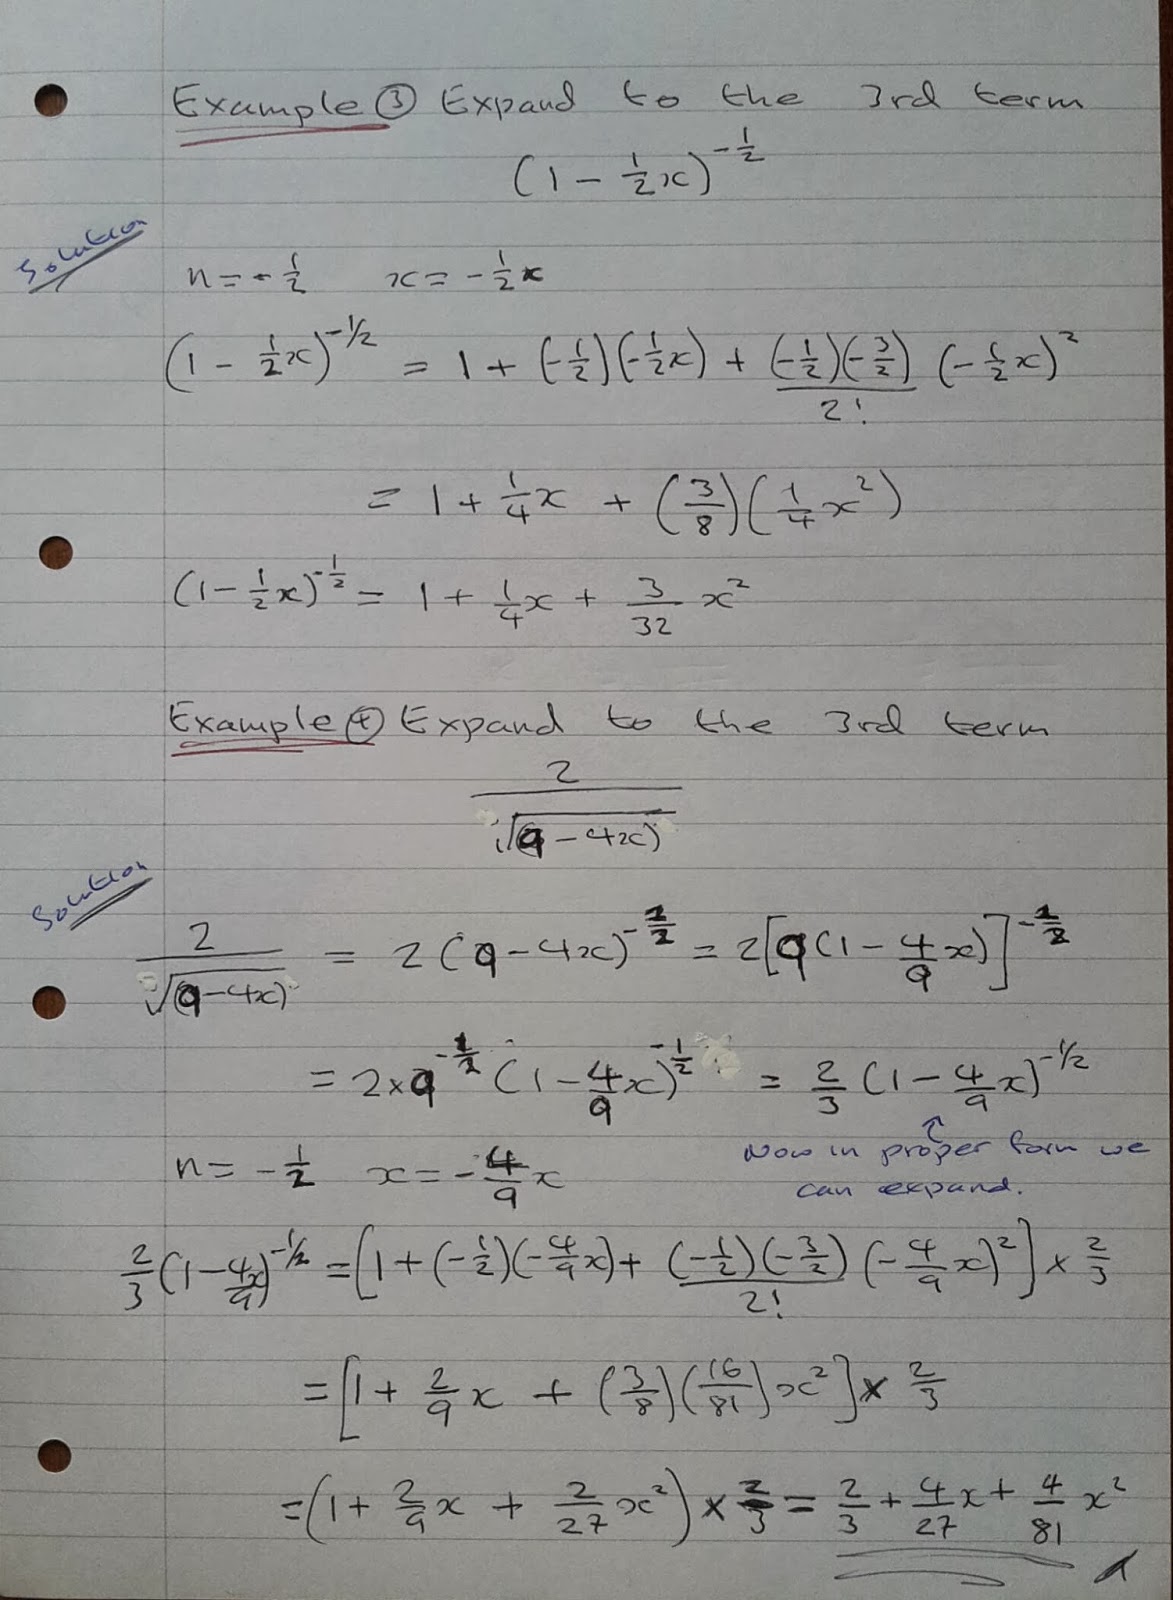 Example ③ Expand to the 3rd term
(1 - 1/2 x)^(-1/2)
Solution
n = -1/2    x = -1/2 x
(1 - 1/2 x)^(-1/2) = 1 + (-1/2)(-1/2 x) + (-1/2)(-3/2)/2! (-1/2 x)^2
= 1 + 1/4 x + (3/8)(1/4 x^2)
(1 - 1/2 x)^(-1/2) = 1 + 1/4 x + 3/32 x^2
Example ④ Expand to the 3rd term
2/√(9 - 4x)
Solution
2/√(9 - 4x) = 2(9 - 4x)^(-1/2) = 2[9(1 - 4/9 x)]^(-1/2)
= 2 × 9^(-1/2) (1 - 4/9 x)^(-1/2) = 2/3 (1 - 4/9 x)^(-1/2)
Now in proper form we
can expand.
n = -1/2    x = -4/9 x
2/3 (1 - 4/9 x)^(-1/2) = [1 + (-1/2)(-4/9 x) + (-1/2)(-3/2)/2! (-4/9 x)^2] × 2/3
= [1 + 2/9 x + (3/8)(16/81)x^2] × 2/3
= (1 + 2/9 x + 2/27 x^2) × 2/3 = 2/3 + 4/27 x + 4/81 x^2